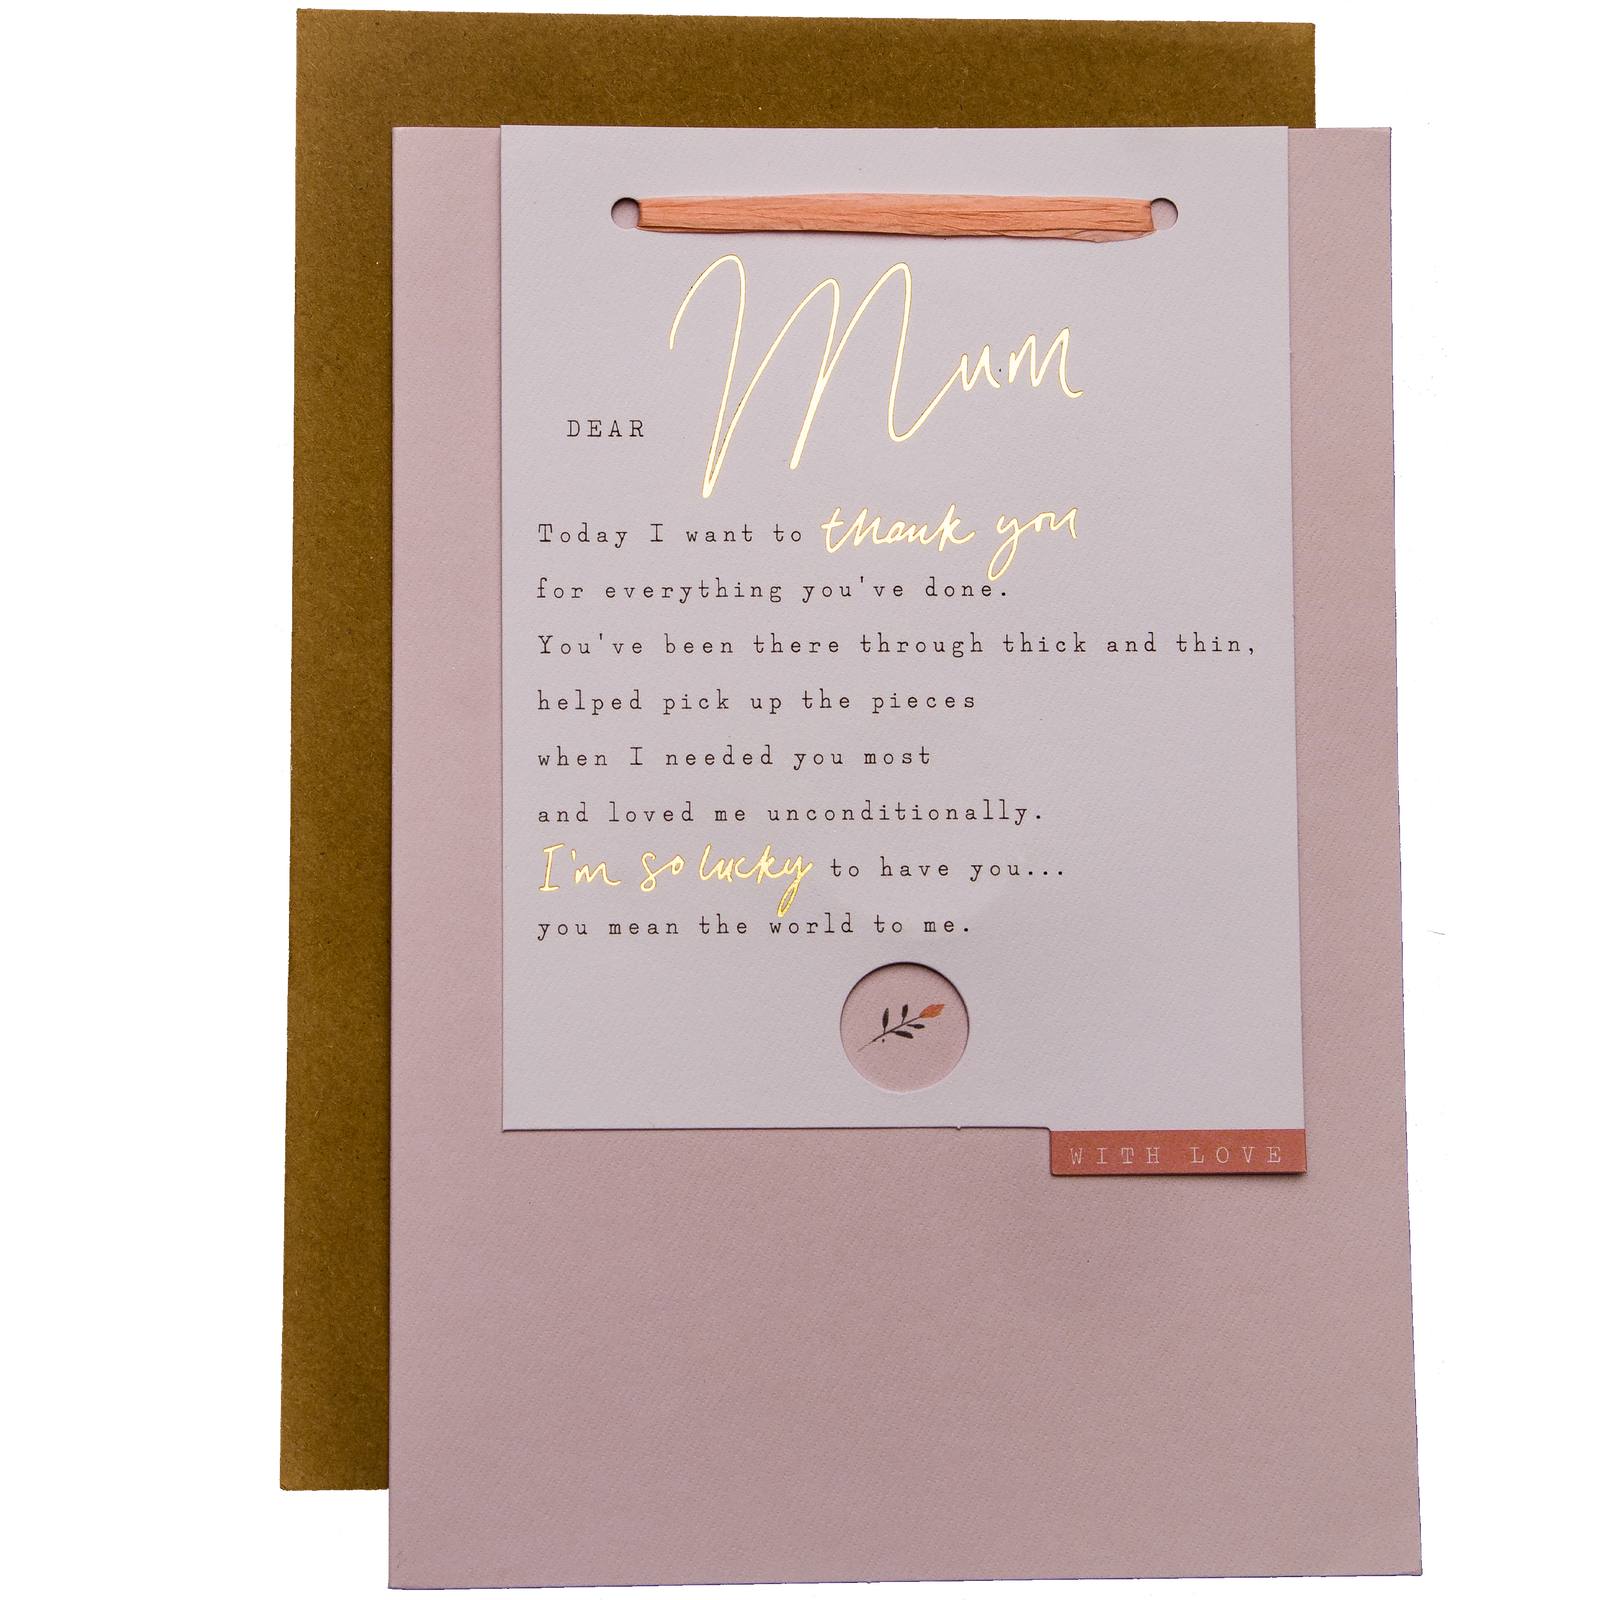 DEAR Mum
Today I want to thank you
for everything you've done.
You've been there through thick and thin,
helped pick up the pieces
when I needed you most
and loved me unconditionally.
I'm so lucky to have you...
you mean the world to me.
WITH LOVE